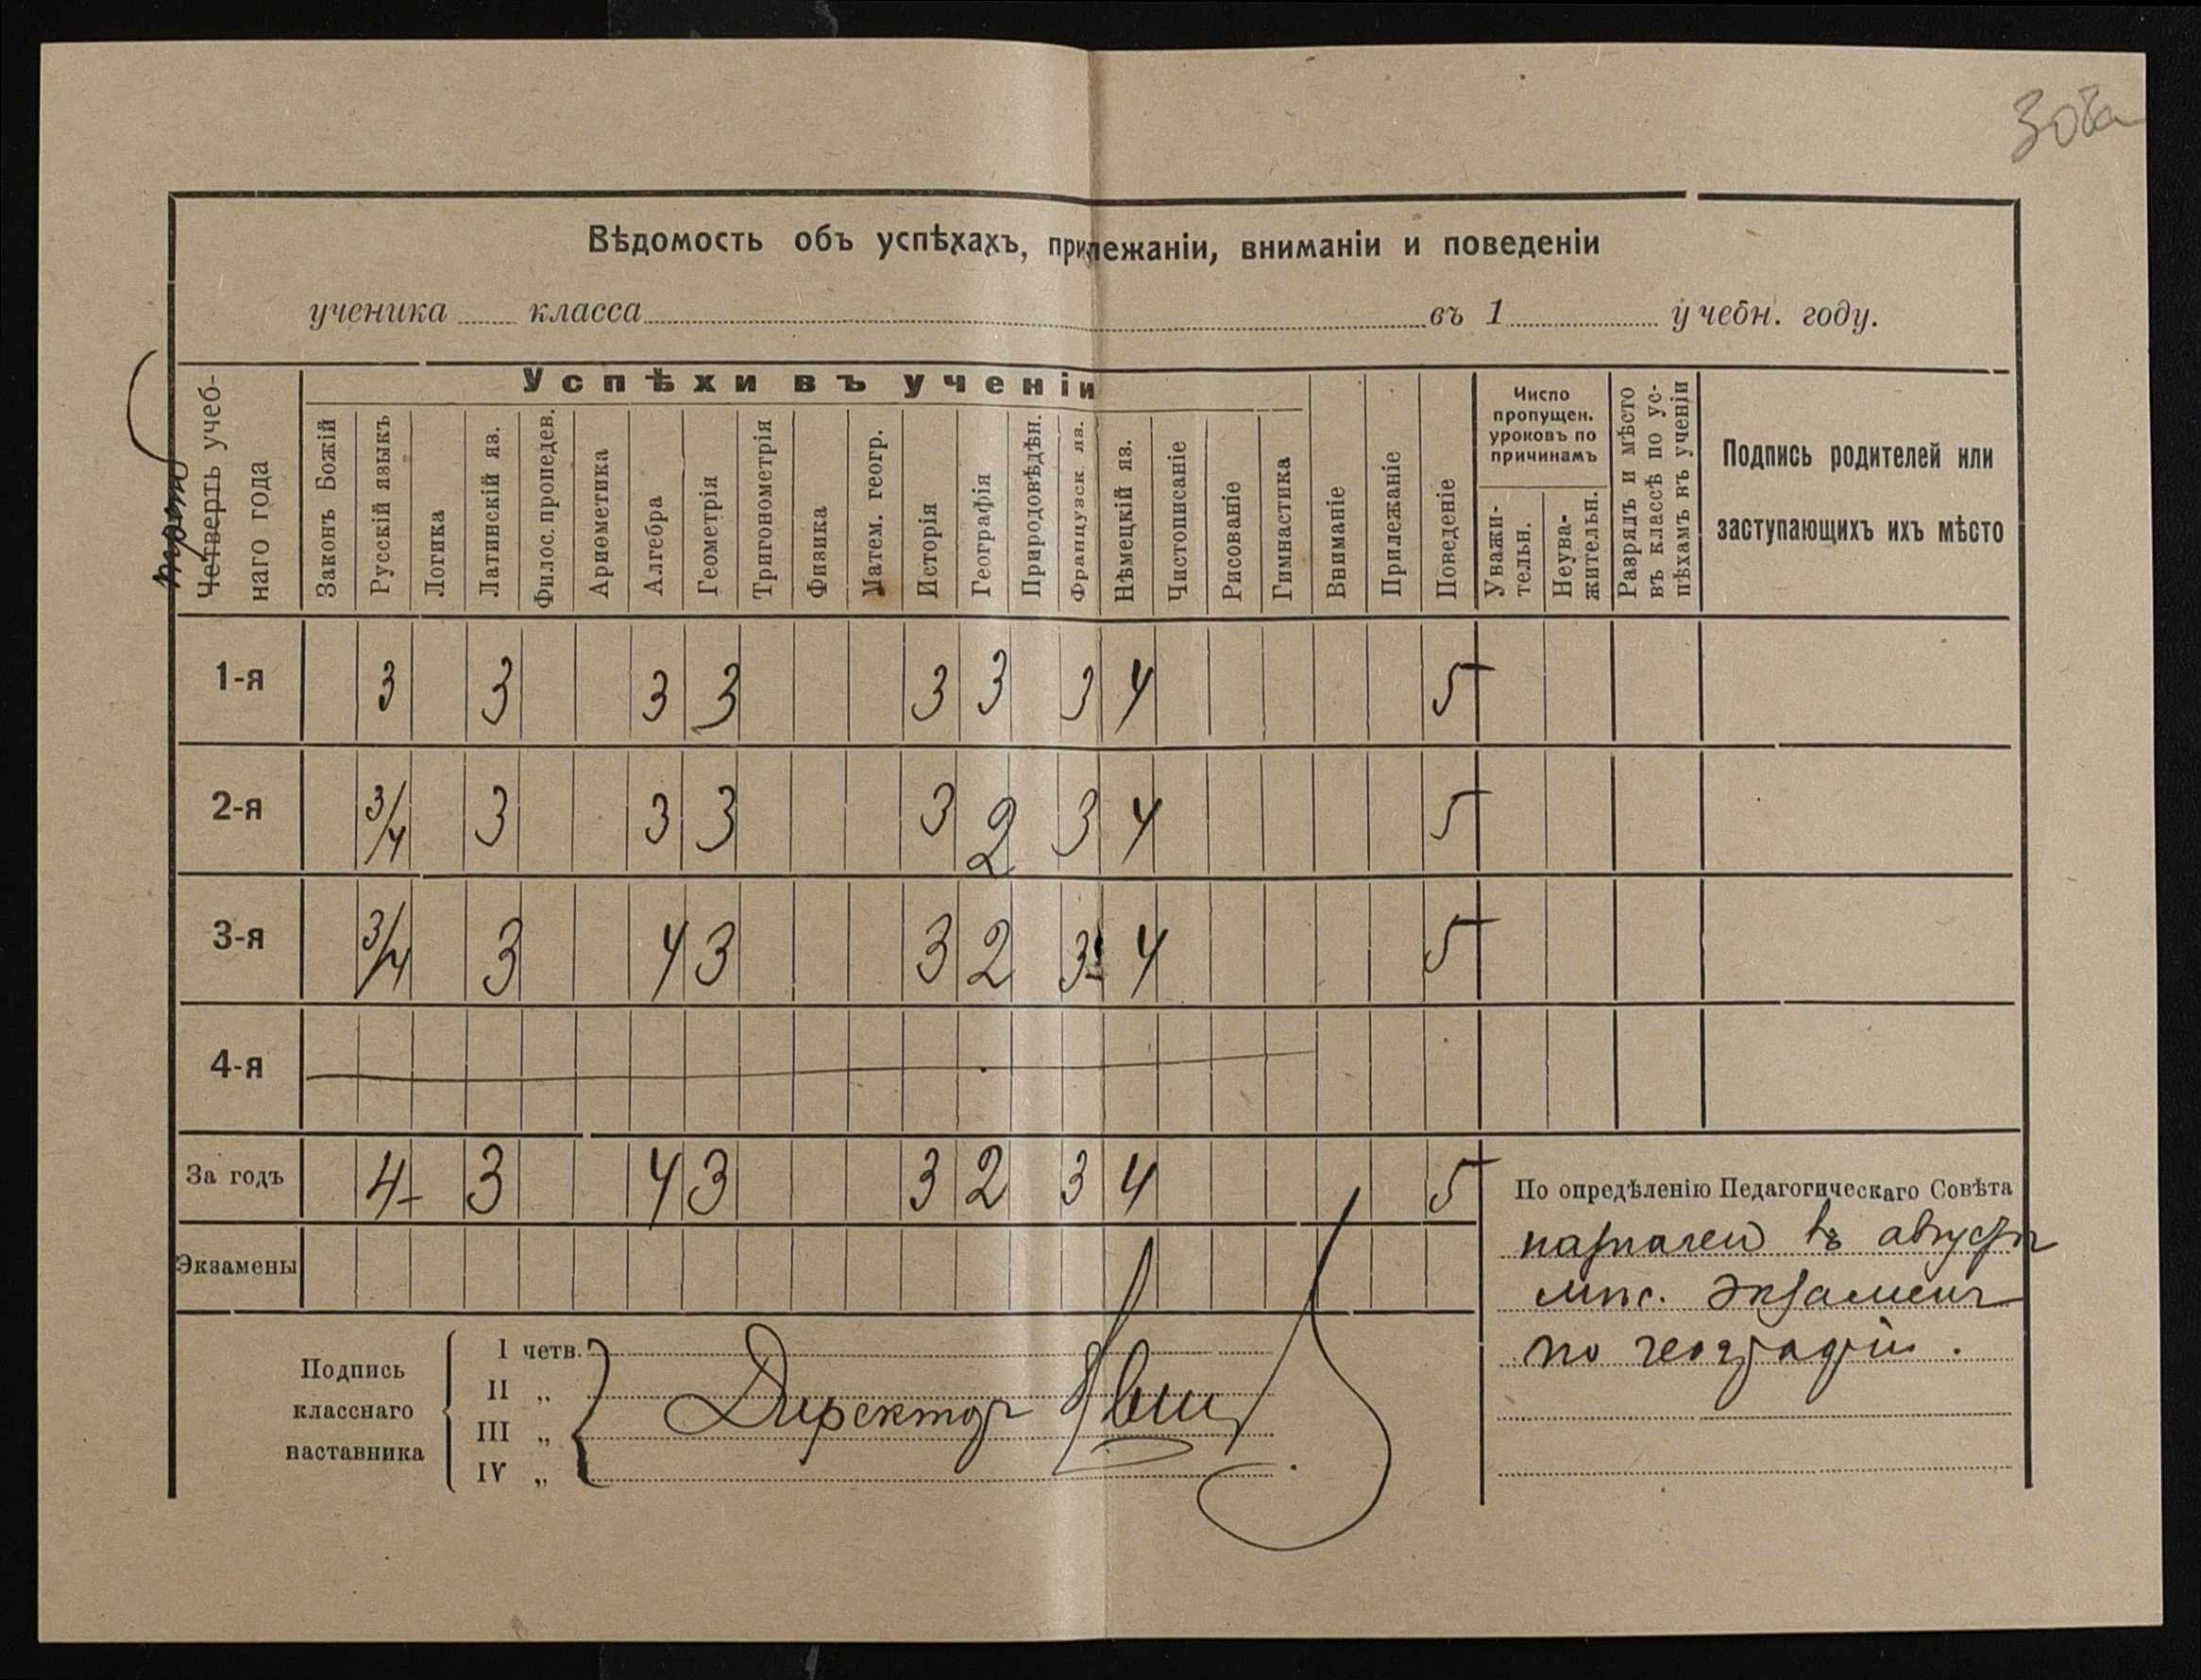 Вѣдомость объ успѣхахъ, прилежаніи, вниманіи и поведеніи
ученика ...... класса .................... въ 1 ............ учебн. году.
Четверть учеб-
наго года
Успѣхи въ ученіи
Законъ Божій
Русскій языкъ
Логика
Латинскій яз.
Филос. пропедев.
Ариѳметика
Алгебра
Геометрія
Тригонометрія
Физика
Матем. геогр.
Исторія
Географія
Природовѣдѣн.
Французск. яз.
Нѣмецкій яз.
Чистописаніе
Рисованіе
Гимнастика
Вниманіе
Прилежаніе
Поведеніе
Число
пропущен.
уроковъ по
причинамъ
Уважи-
тельн.
Неува-
жительн.
Разрядъ и мѣсто
въ классѣ по ус-
пѣхамъ въ ученіи
Подпись родителей или
заступающихъ ихъ мѣсто
1-я 3 3 3 3 3 3 3 4 5
2-я 3/4 3 3 3 3 2 3 4 5
3-я 3/4 3 4 3 3 2 3 4 5
4-я
За годъ 4- 3 4 3 3 2 3 4 5
Экзамены
По опредѣленію Педагогическаго Совѣта
назначенъ въ августѣ
мѣс. экзаменъ
по географіи.
Подпись
класснаго
наставника
I четв.
II „
III „
IV „
Директоръ